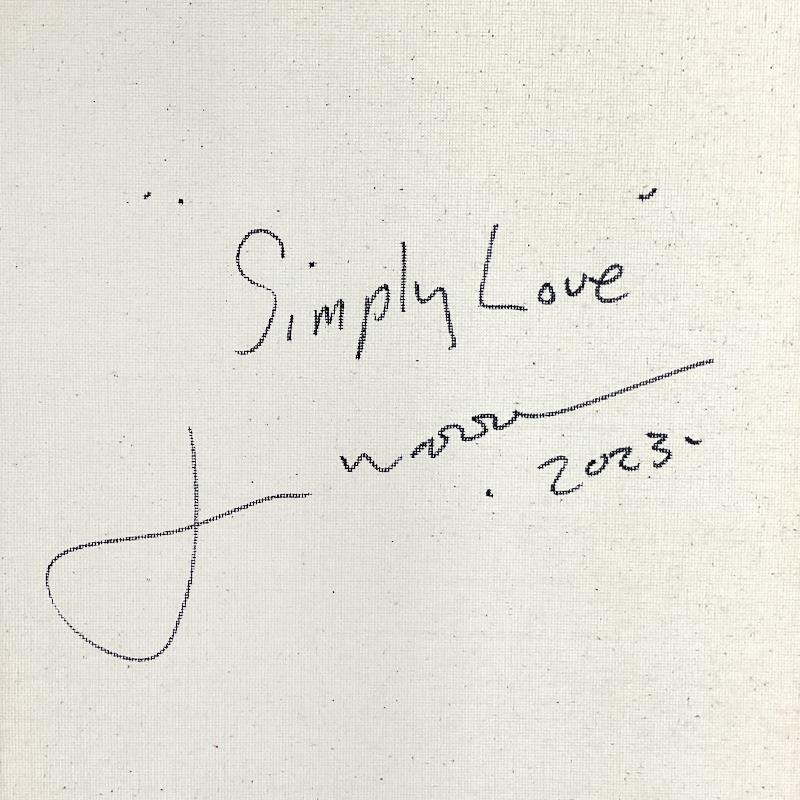 "Simply Love"
J
2023